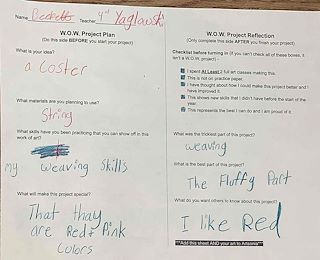 Name Beckett Teacher 4th Yaglowski
W.O.W. Project Plan
(Do this side BEFORE you start your project)
What is your idea?
a coster
What materials are you planning to use?
String
What skills have you been practicing that you can show off in this
work of art?
my weaving skills
What will make this project special?
That thay
are Red & Pink
Colors
W.O.W. Project Reflection
(Only complete this side AFTER you finish your project)
Checklist before turning in (if you can't check all of these boxes, it
isn't a W.O.W. project):
I spent At Least 2 full art classes making this.
This is not on practice paper.
I have thought about how I could make this project better and
have improved it.
This shows new skills that I didn't have before the start of the
year.
This represents the best I can do and I am proud of it
What was the trickiest part of this project?
weaving
What is the best part of this project?
The Fluffy Part
What do you want others to know about this project?
I like Red
**Add this sheet AND your art to Artsonia**